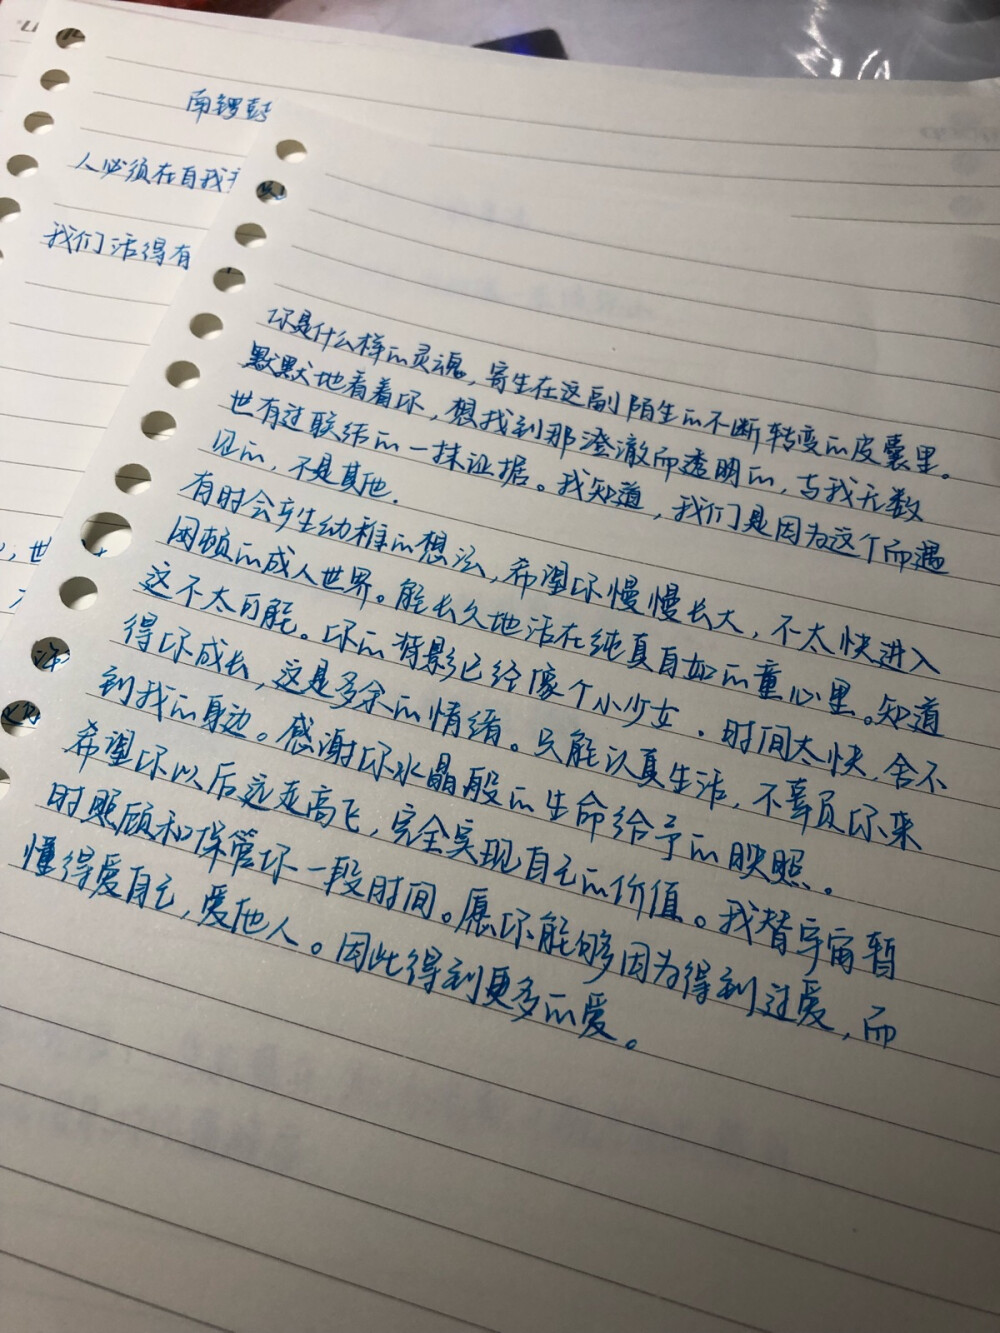 南锣鼓
人必须在自我
我们活得有
你是什么样的灵魂，寄生在这副陌生的不断转变的皮囊里。
默默地看着你，想找到那澄澈而透明的，与我无数
世有过联结的一抹证据。我知道，我们是因为这个而遇
见的，不是其他.
有时会产生幼稚的想法，希望你慢慢长大，不太快进入
困顿的成人世界。能长久地活在纯真自如的童心里。知道
这不太可能。你的背影已经像个小少女．时间太快，舍不
得你成长，这是多余的情绪。只能认真生活，不辜负你来
到我的身边。感谢你水晶般的生命给予的映照。
希望你以后远走高飞，完全实现自己的价值。我替宇宙暂
时照顾和保管你一段时间。愿你能够因为得到过爱，而
懂得爱自己，爱他人。因此得到更多的爱。